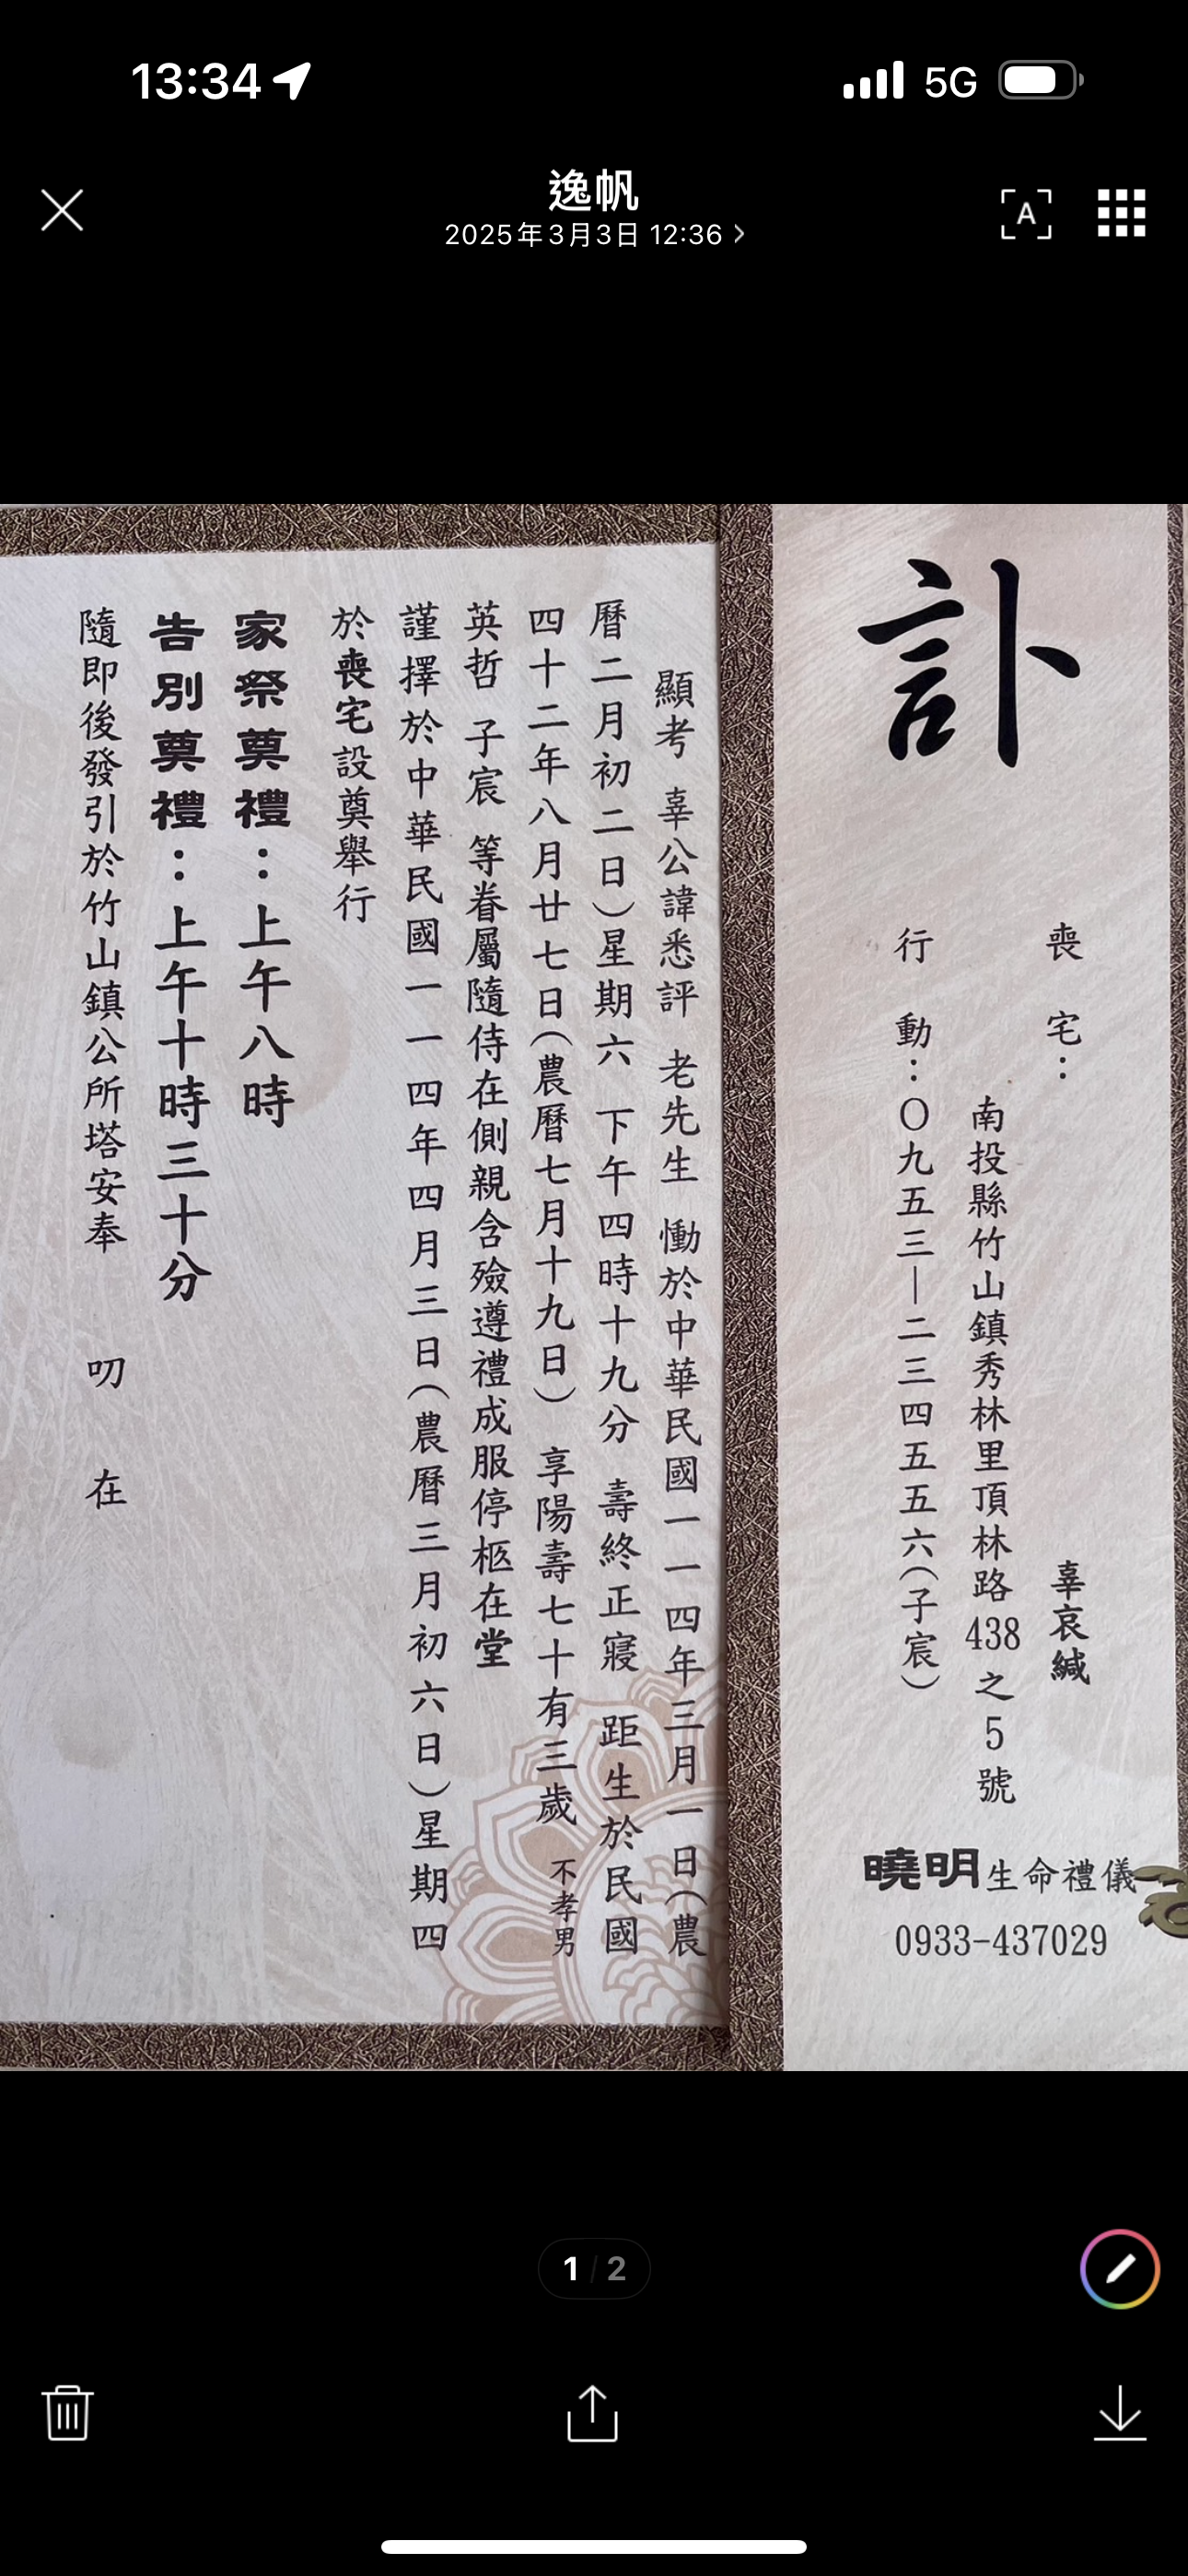 13:34
5G
逸帆
2025年3月3日 12:36
A
訃
喪宅：
辜哀緘
南投縣竹山鎮秀林里頂林路438之5號
行動：〇九五三—二三四五五六（子宸）
曉明生命禮儀
0933-437029
顯考 辜公諱悉評 老先生 慟於中華民國一一四年三月一日（農
曆二月初二日）星期六 下午四時十九分 壽終正寢 距生於民國
四十二年八月廿七日（農曆七月十九日） 享陽壽七十有三歲 不孝男
英哲 子宸 等眷屬隨侍在側親含殮遵禮成服停柩在堂
謹擇於中華民國一一四年四月三日（農曆三月初六日）星期四
於喪宅設奠舉行
家祭奠禮：上午八時
告別奠禮：上午十時三十分
隨即後發引於竹山鎮公所塔安奉 叨 在
1 / 2